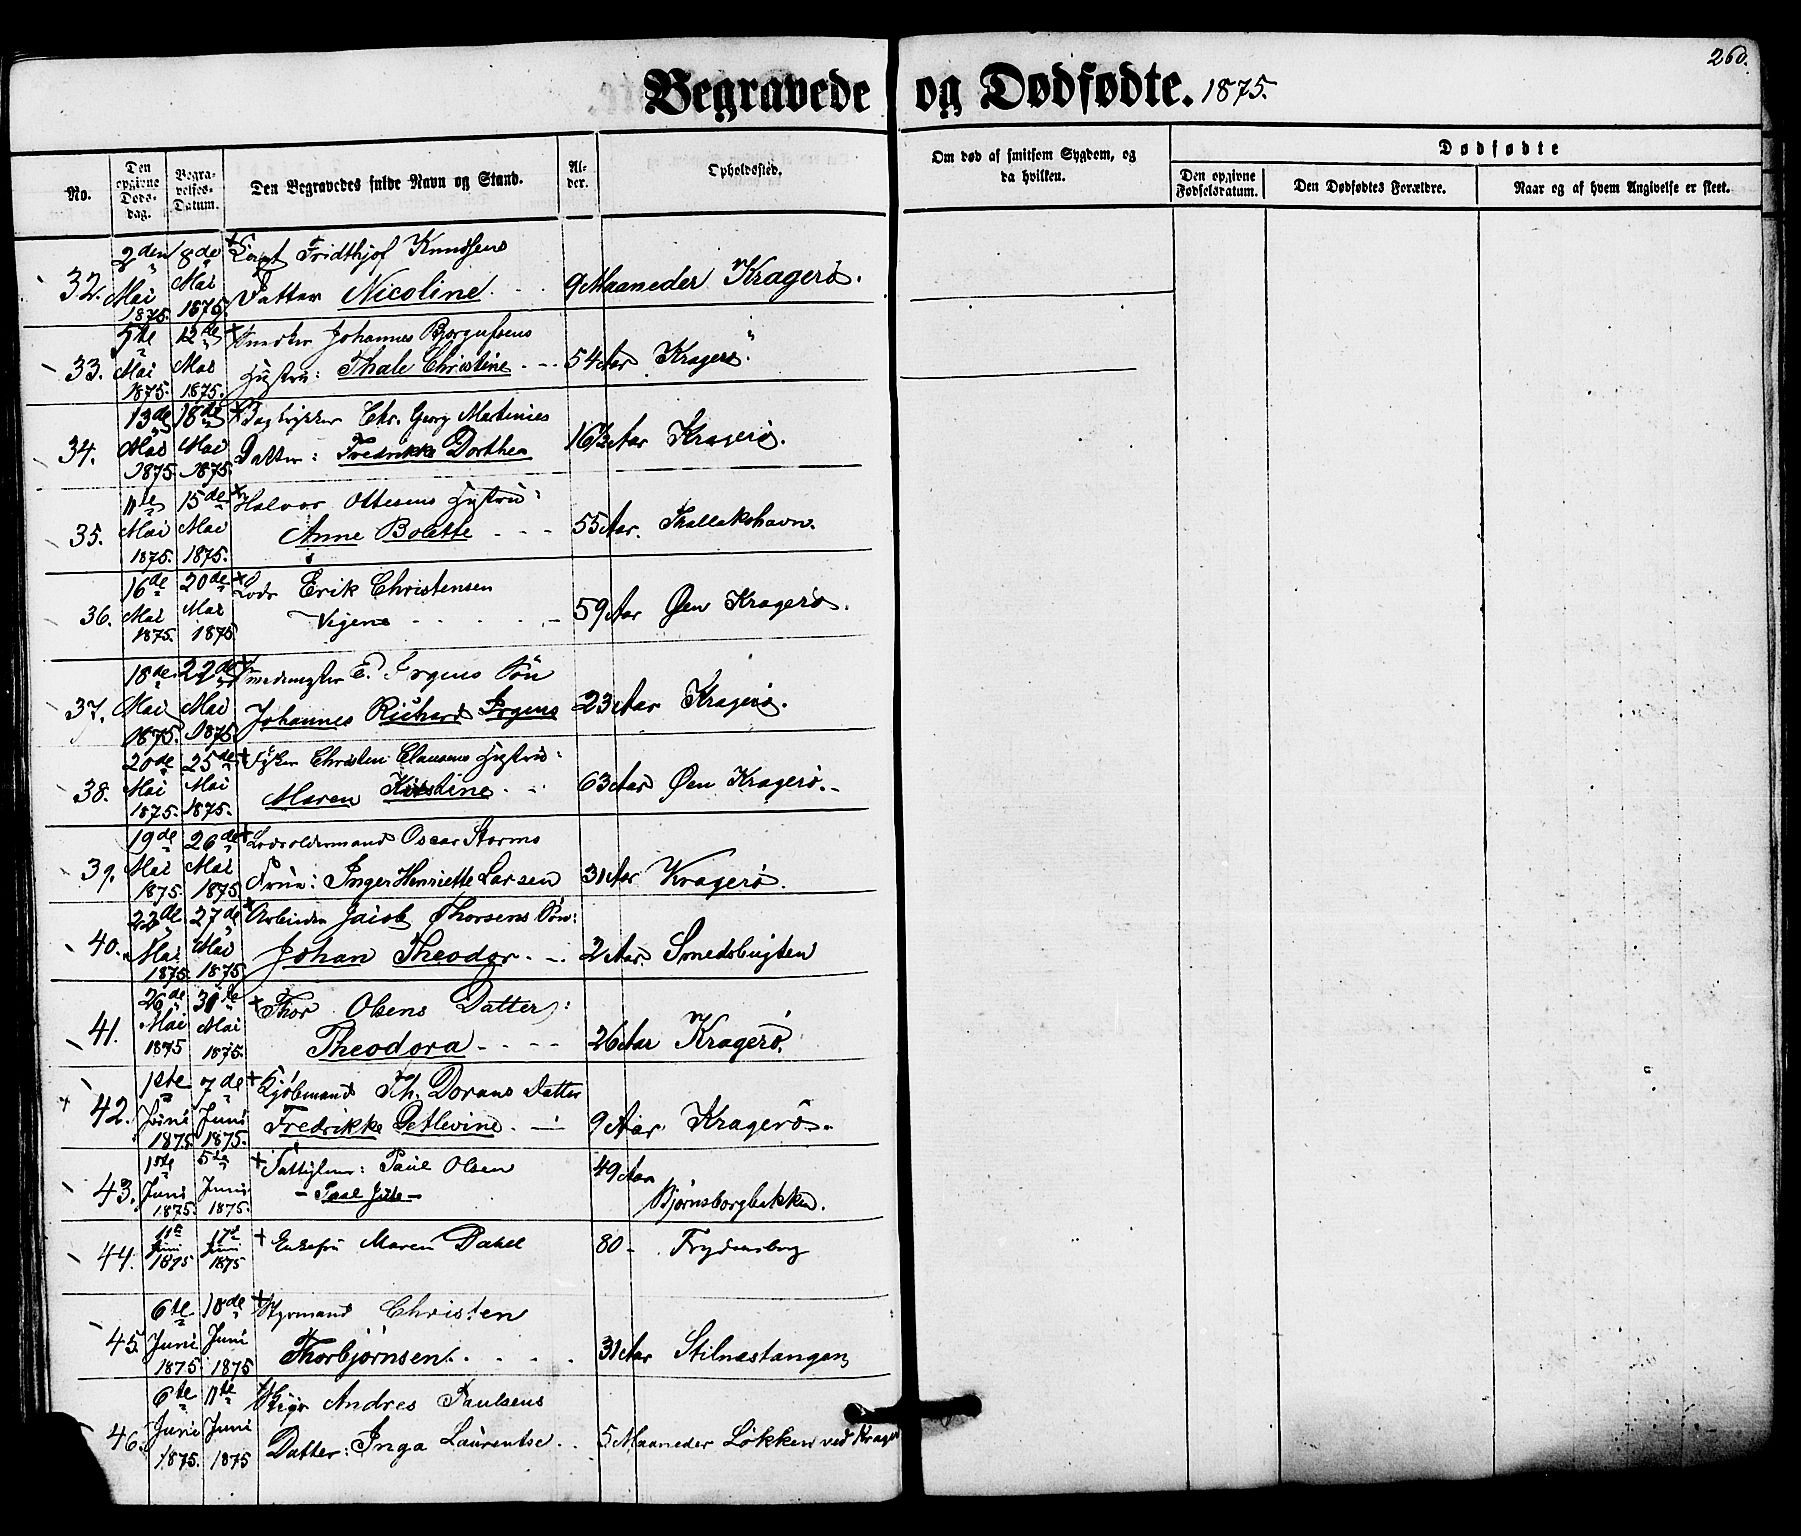 260.
Begravede og Dødfødte. 1875.
No.
Den opgivne Dødsdag.
Begravelses-Datum.
Den Begravedes fulde Navn og Stand.
Alder.
Opholdssted.
Om død af smitsom Sygdom, og da hvilken.
Dødfødte
Den opgivne Fødselsdatum.
Den Dødfødtes Forældre.
Naar og af hvem Angivelse er skeet.
32. 2den Mai 1875. 8de Mai 1875. Capt Fridthjof Knudsens
Datter Nicoline. 9 Maaneder Kragerø.
33. 5te Mai 1875. 12de Mai 1875. Snedker Johannes Bjorgufsens
Hustru: Thale Christine 54 Aar Kragerø.
34. 13de Mai 1875. 18de Mai 1875. Bogtrykker Chr. Georg Martinies
Datter: Fredrikke Dorthea 16½ Aar Kragerø.
35. 11te Mai 1875. 15de Mai 1875. Halvor Ottesens Hustru:
Anne Bolette 55 Aar. Thallakshavn.
36. 16de Mai 1875. 20de Mai 1875 Lods Erik Christensen
Vejens 59 Aar Øen Kragerø.
37. 18de Mai 1875. 22de Mai 1875 Smedmester E. Irgens Søn
Johannes Richard Irgens 23 Aar Kragerø.
38. 20de Mai 1875. 25de Mai 1875. Fisker Christen Clausens Hustru:
Maren Kirstine 63 Aar Øen Kragerø.
39. 19de Mai 1875. 26de Mai 1875 Lodsoldermand Oscar Storms
Frue: Inger Henriette Larsen 31 Aar Kragerø.
40. 22de Mai 1875. 27de Mai 1875 Arbeider Jacob Thorsens Søn:
Johan Theodor 2 Aar. Smedsbugten
41. 26de Mai 1875 31te Mai 1875. Thor Olsens Datter:
Theodora 26 Aar Kragerø.
42. 1ste Juni 1875. 7de Juni 1875. Kjøbmand Th. Dorans Datter
Fredrikke Detlevine 9 Aar Kragerø.
43. 1ste Juni 1875. 5te Juni 1875. Fattiglem: Paul Olsen
49 Aar Bjørnsborgbakken.
44. 11te Juni 1875 17de Juni 1875 Enkefru Maren Dahll 80 Frydensborg
45. 6te Juni 1875 10de Juni 1875 Styrmand Christen
Thorbjørnsen. 31 Aar Stilnestangen
46. 6te Juni 1875. 11te Juni 1875 Andres Paulsens
Datter: Inga Laurentse 5 Maaneder Løkken ved Krager